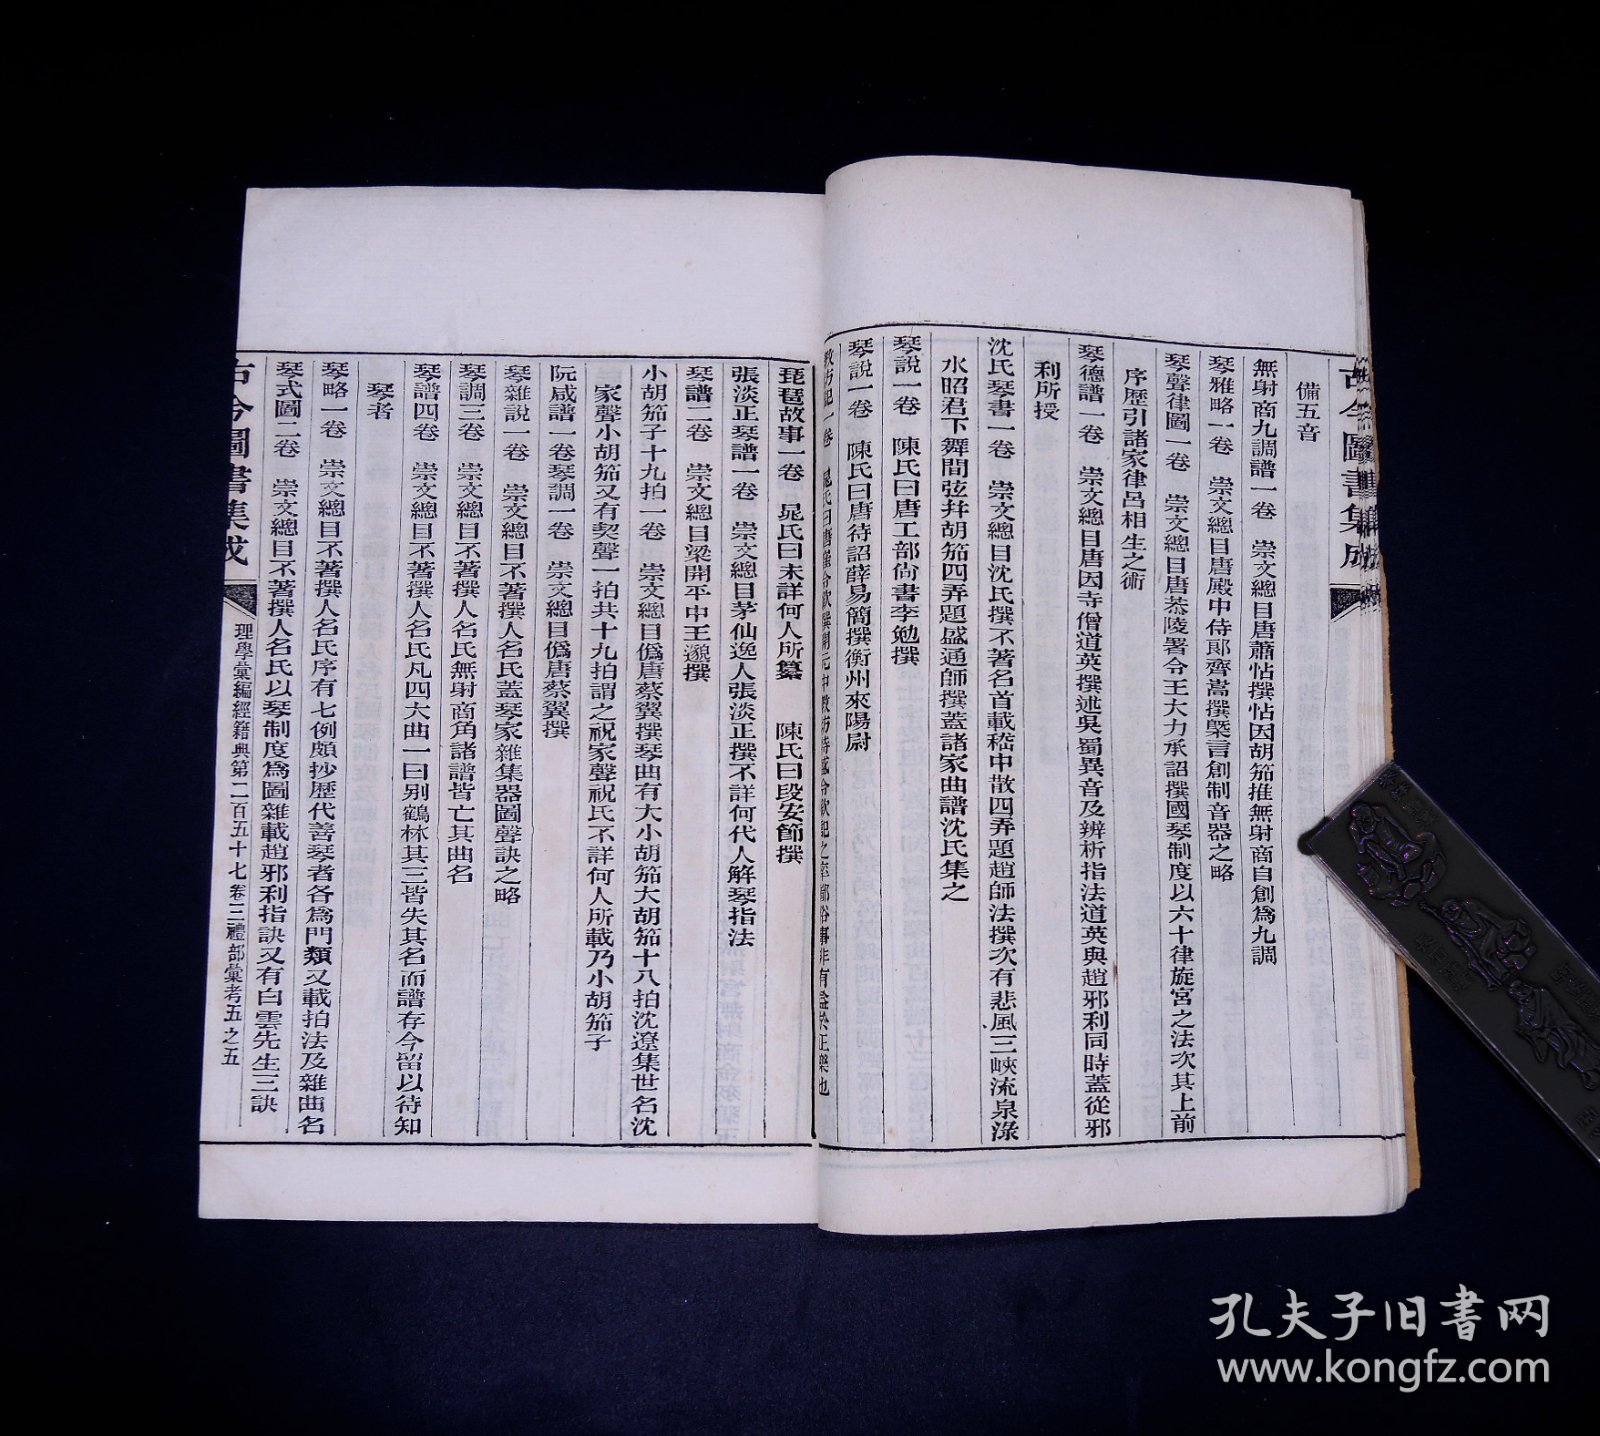 古今圖書集成
備五音
無射商九調譜一卷　崇文總目唐蕭祜撰祜因胡笳推無射商自創爲九調
琴雅略一卷　崇文總目唐殿中侍郎齊嵩撰槩言創制音器之略
琴聲律圖一卷　崇文總目唐恭陵署令王大力承詔撰國琴制度以六十律旋宮之法次其上前
序歷引諸家律呂相生之術
琴德譜一卷　崇文總目唐因寺僧道英撰述吳蜀異音及辨析指法道英與趙邪利同時蓋從邪
利所授
沈氏琴書一卷　崇文總目沈氏撰不著名首載嵇中散四弄題趙師法撰次有悲風三峽流泉淥
水昭君下舞間弦幷胡笳四弄題盛通師撰蓋諸家曲譜沈氏集之
琴說一卷　陳氏曰唐工部尙書李勉撰
琴說一卷　陳氏曰唐待詔薛易簡撰衡州來陽尉
教坊記一卷　晁氏曰唐崔令欽撰開元中教坊特盛令欽記之率鄙俗事非有益於正樂也
琵琶故事一卷　晁氏曰未詳何人所纂　陳氏曰段安節撰
張淡正琴譜一卷　崇文總目茅仙逸人張淡正撰不詳何代人解琴指法
琴譜二卷　崇文總目梁開平中王邈撰
小胡笳子十九拍一卷　崇文總目僞唐蔡翼撰琴曲有大小胡笳大胡笳十八拍沈遼集世名沈
家聲小胡笳又有契聲一拍共十九拍謂之祝家聲祝氏不詳何人所載乃小胡笳子
阮咸譜一卷琴調一卷　崇文總目僞唐蔡翼撰
琴雜說一卷　崇文總目不著撰人名氏蓋琴家雜集器圖聲訣之略
琴調三卷　崇文總目不著撰人名氏無射商角諸譜皆亡其曲名
琴譜四卷　崇文總目不著撰人名氏凡四大曲一曰別鶴林其三皆失其名而譜存今留以待知
琴者
琴略一卷　崇文總目不著撰人名氏序有七例頗抄歷代善琴者各爲門類又載拍法及雜曲名
琴式圖二卷　崇文總目不著撰人名氏以琴制度爲圖雜載趙邪利指訣又有白雲先生三訣
古今圖書集成
理學彙編經籍典第二百五十七卷三禮部彙考五之五
孔夫子旧书网
www.kongfz.com